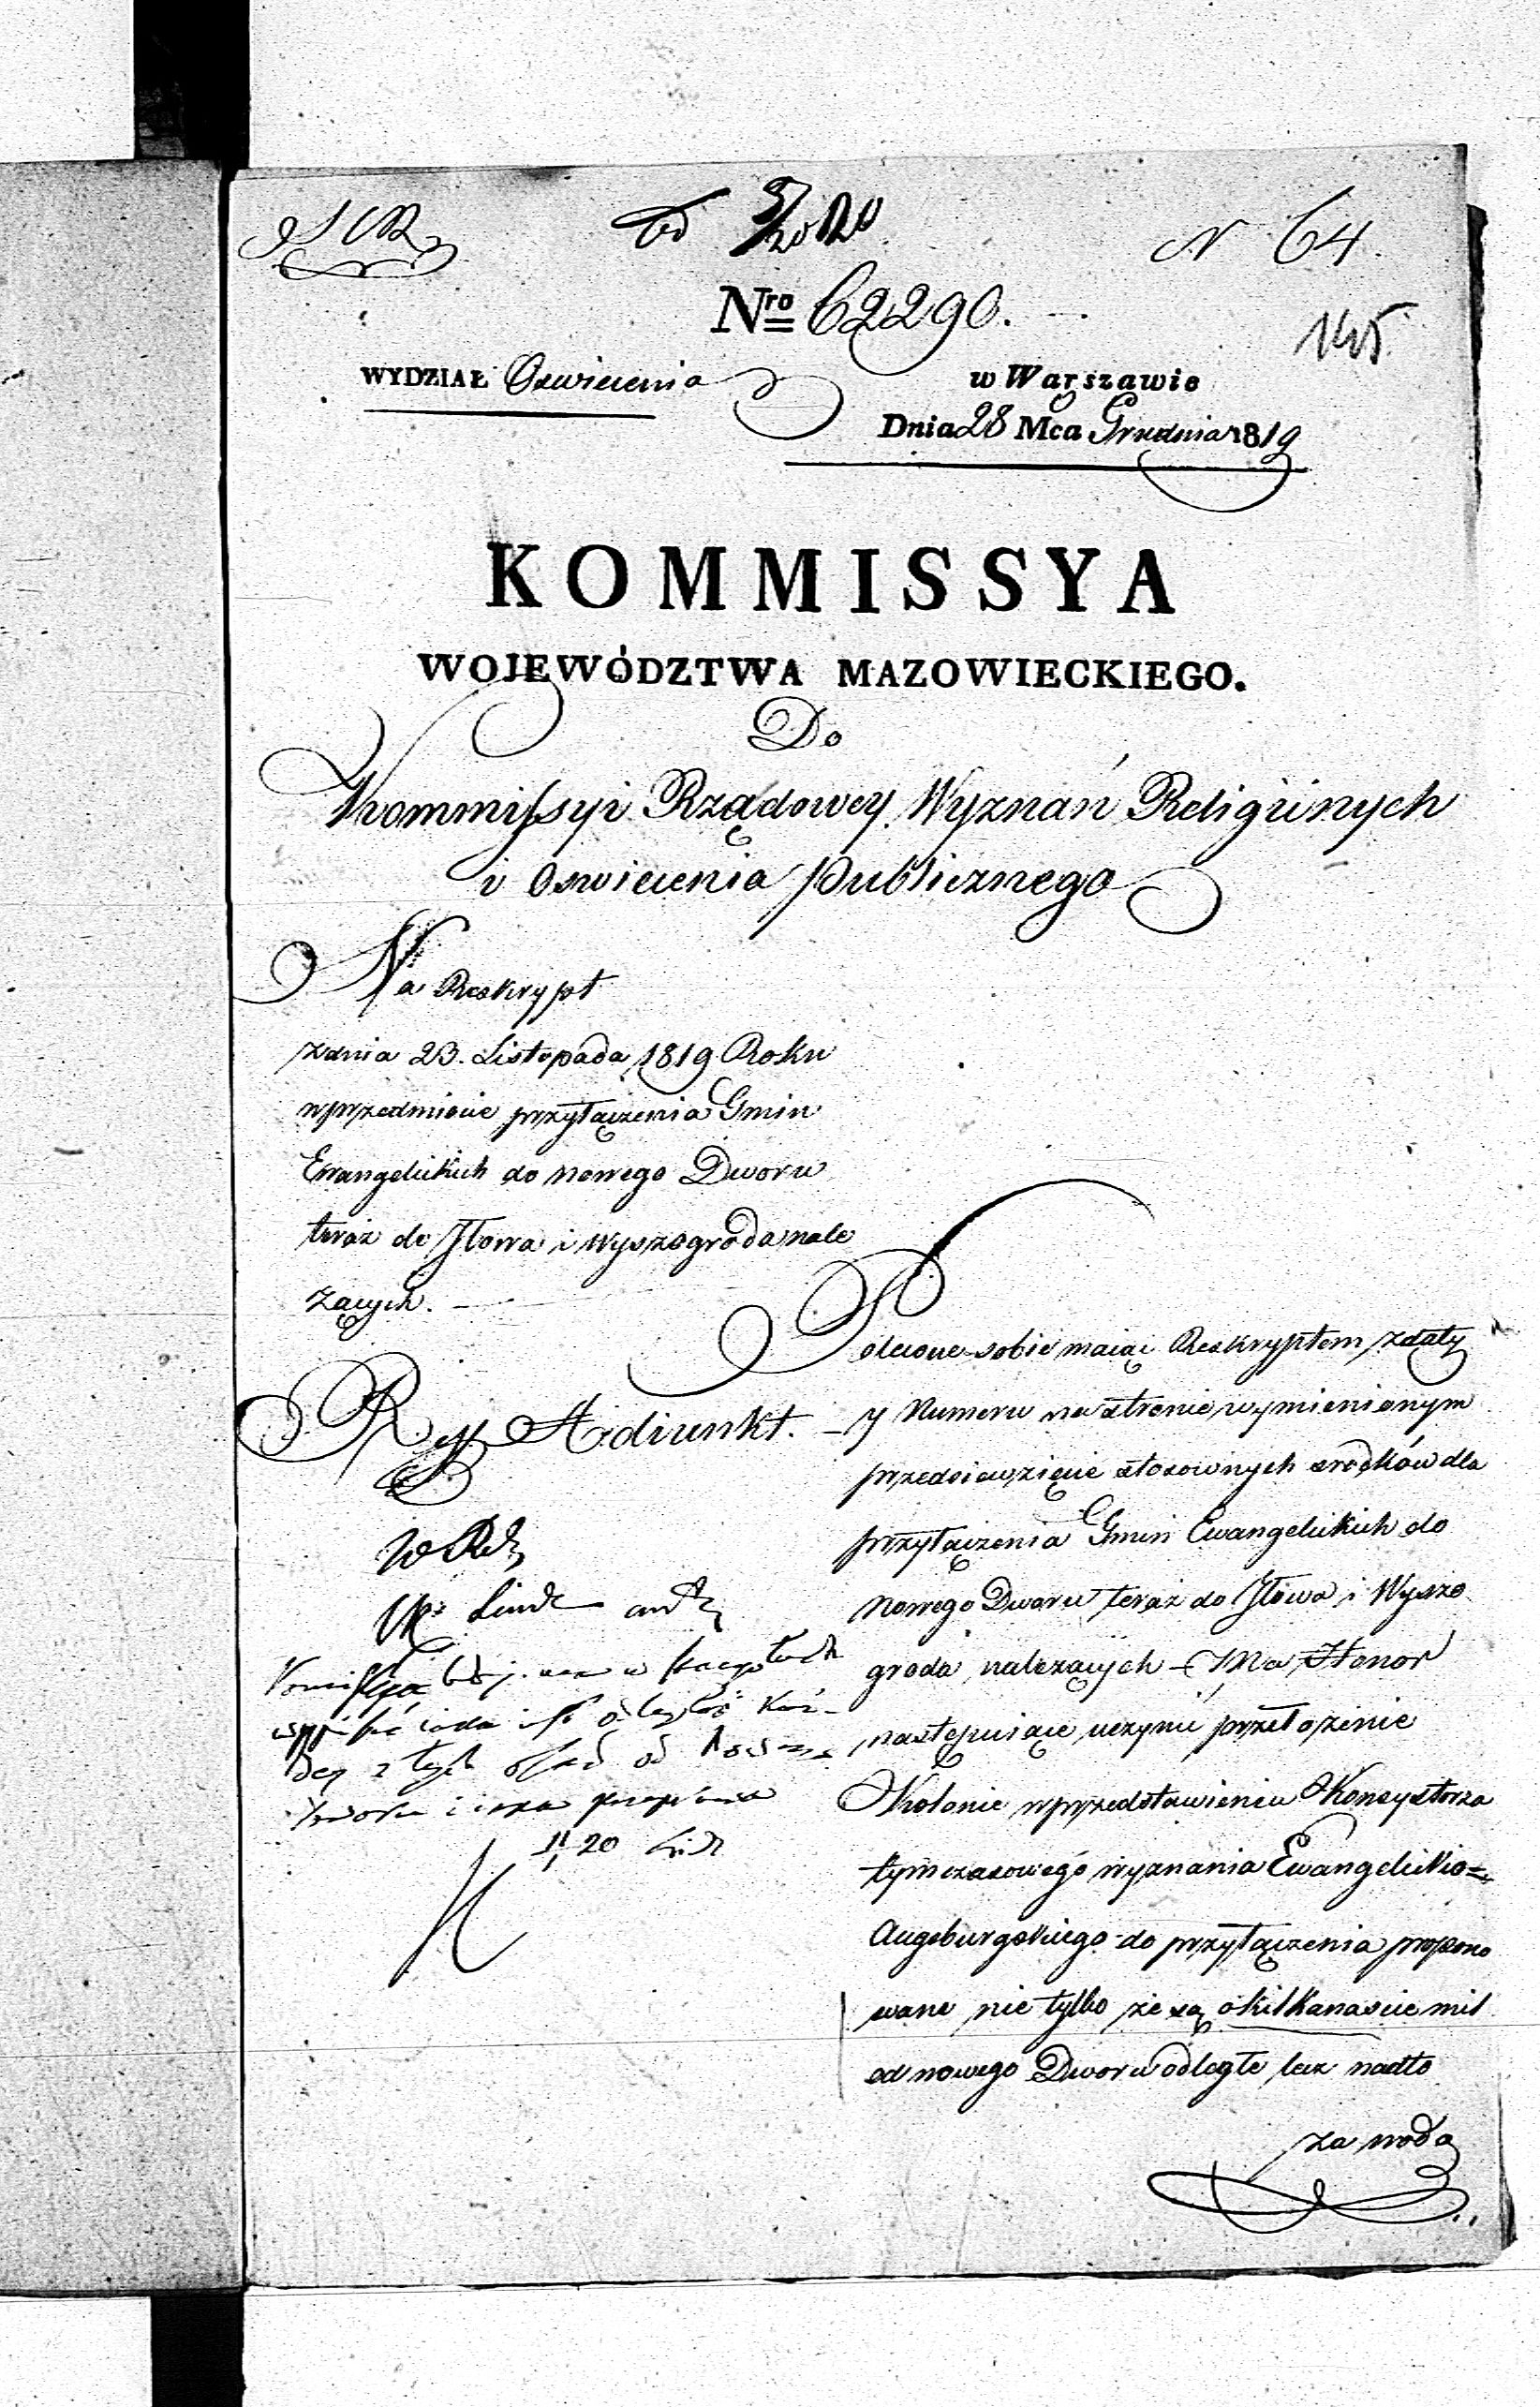 N 64.
Nro 62290.
145
WYDZIAŁ Oswiecenia
w Warszawie
Dnia 28 Mca Grudnia 1819
KOMMISSYA
WOJEWÓDZTWA MAZOWIECKIEGO.
Do
Kommissyi Rządowey Wyznań Religiinych
i Oswiecenia Publicznego
Na Reskrypt
z dnia 23. Listopada 1819 Roku
w przedmiocie przyłączenia Gmin
Ewangelickich do nowego Dworu
teraz do Jłowa i Wyszogroda nale
żących. —
Adiunkt.
Polecone sobie maiąc Reskryptem z daty
y Numeru na stronie wymienionym
przedsiewzięcie stosownych srodków dla
przyłączenia Gmin Ewangelickich do
Nowego Dworu teraz do Jłowa i Wyszo
groda należących — Ma Honor
następuiące uczynić przełożenie
Kolonie w przedstawieniu Konsystorza
tymczasowego wyznania Ewangelicko=
Augsburgskiego do przyłączenia propono
wane nie tylko że są o kilkanascie mil
od nowego Dworu odległe lecz nadto
za wodą
Linde
20